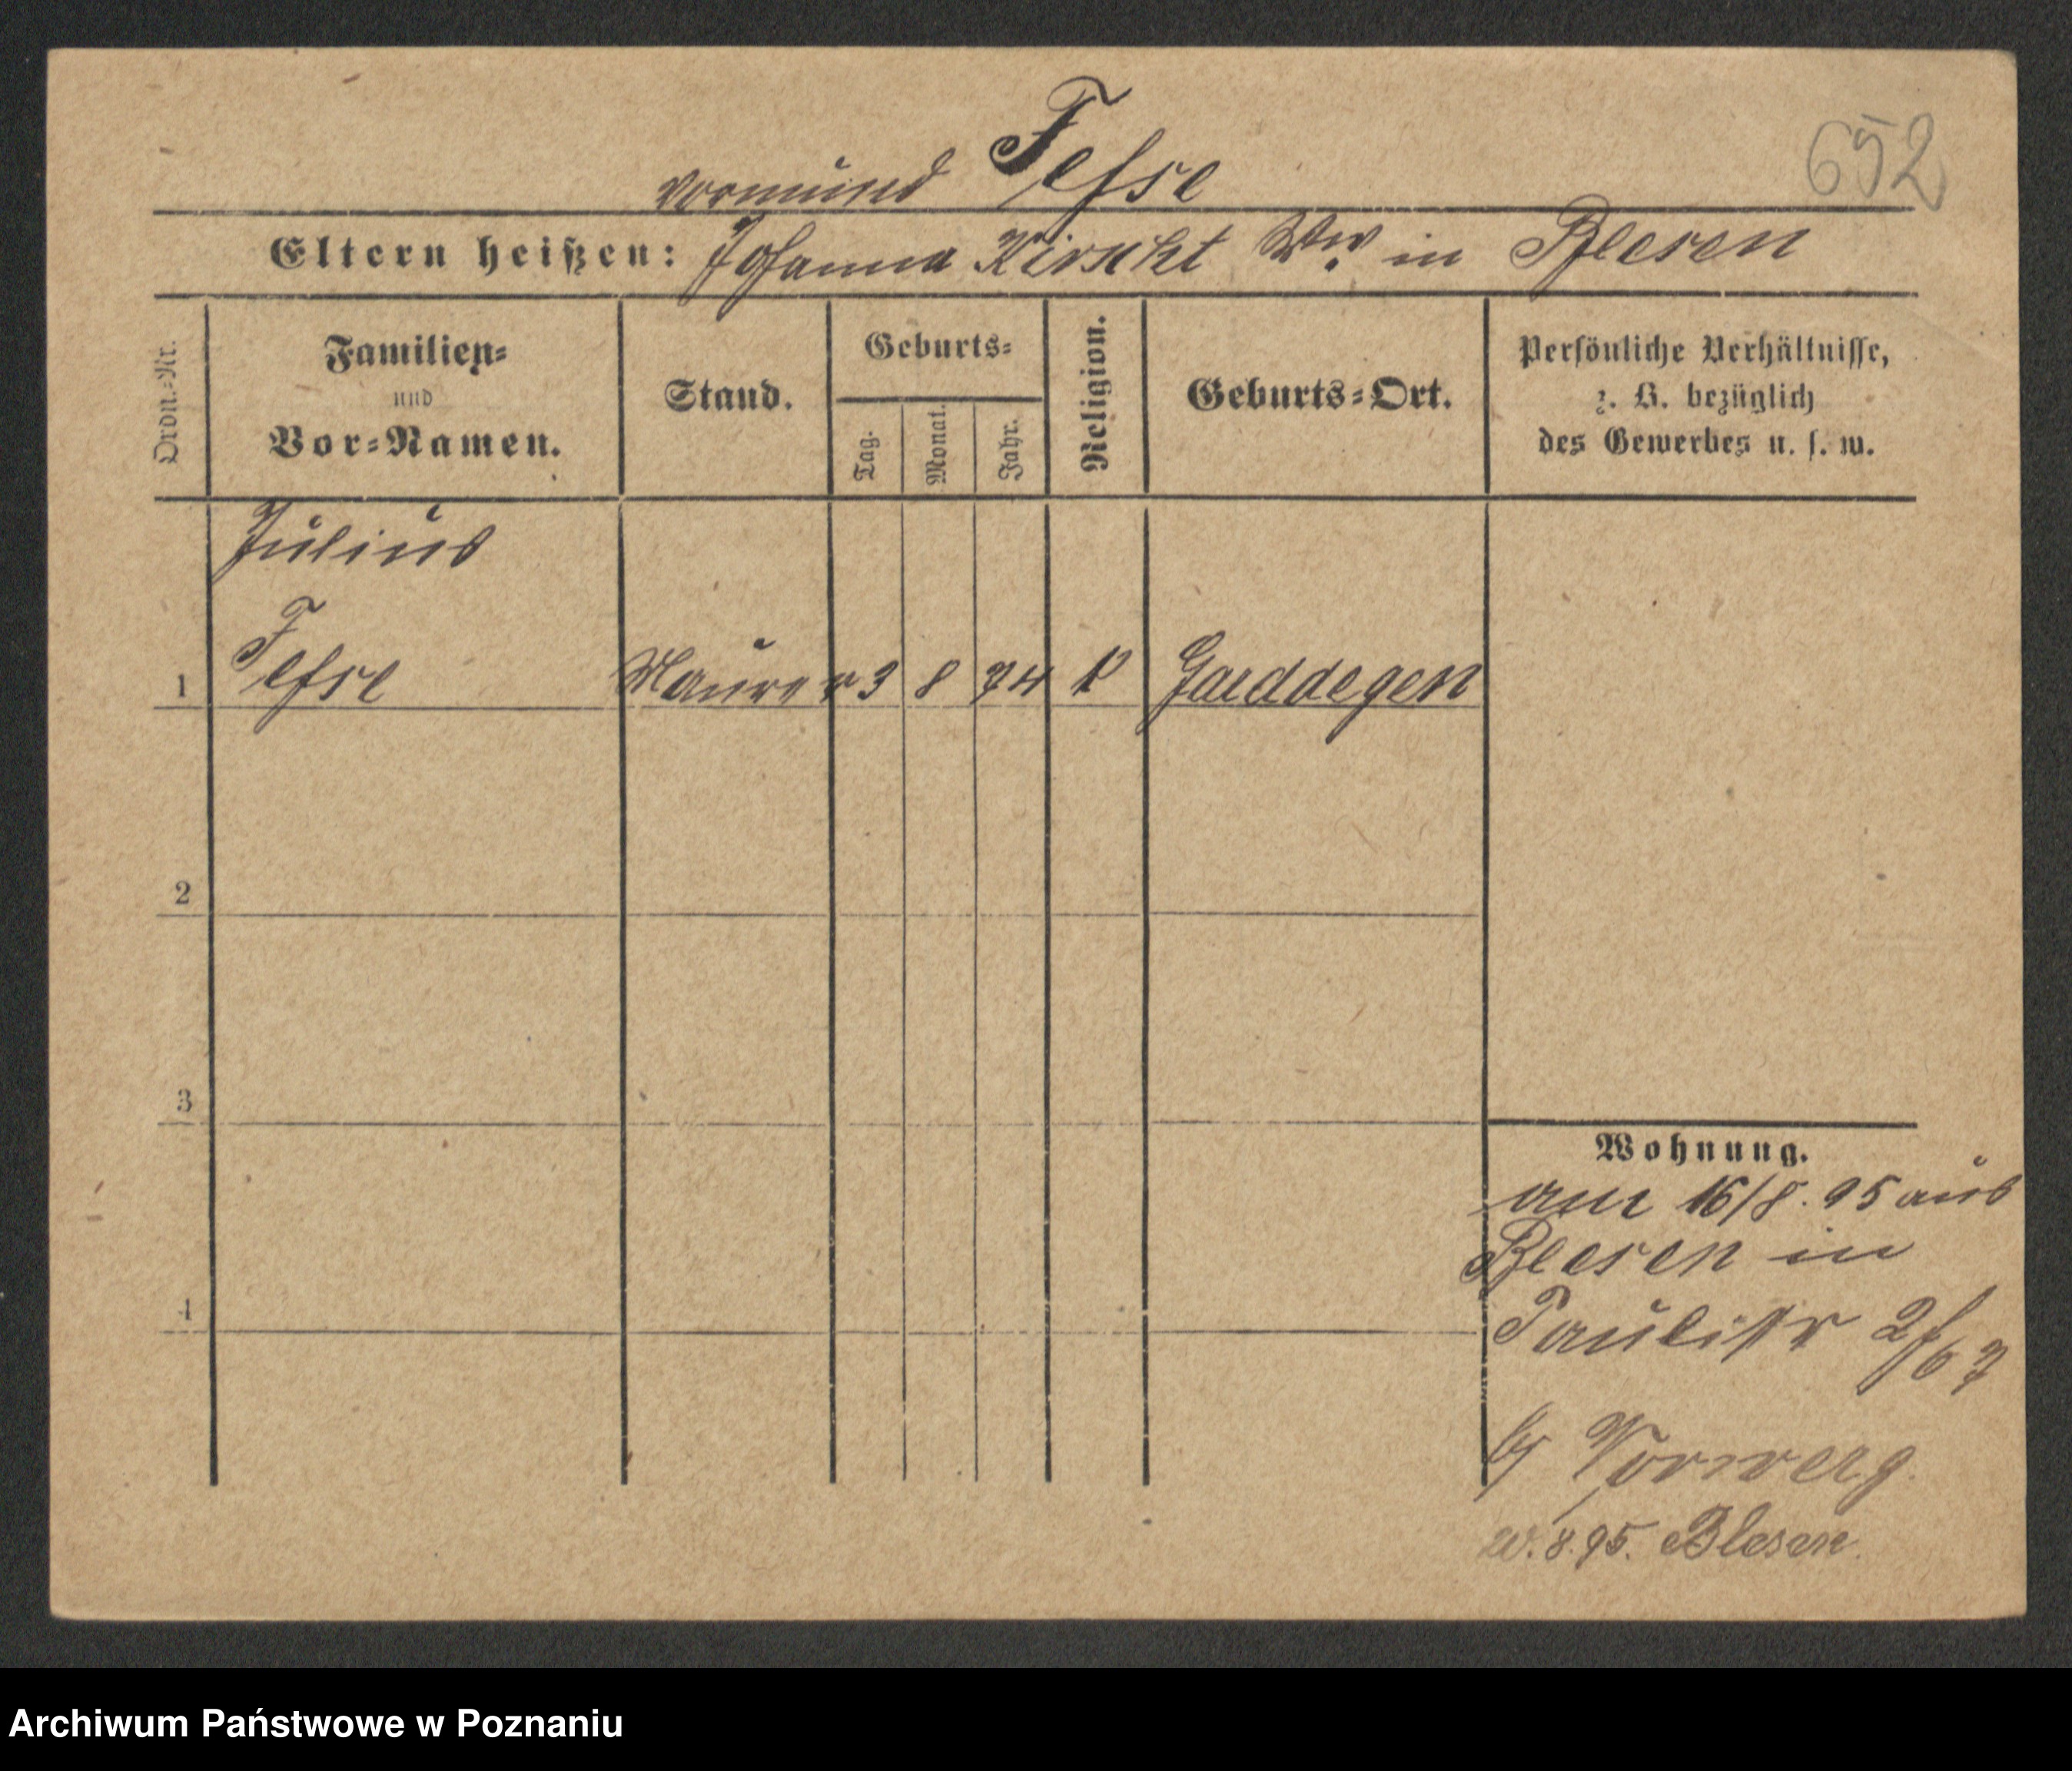 652
vormund Fehse
Eltern heißen: Johanna Kirscht Ww. in Blesen
Ordn.=Nr.
Familien=
und
Vor=Namen.
Stand.
Geburts=
Tag.
Monat.
Jahr.
Religion.
Geburts=Ort.
Persönliche Verhältnisse,
z. B. bezüglich
des Gewerbes u. s. w.
Julius
1 Fehse Maurer 3 8 74 K
2
3
4
Wohnung.
am 16/8. 95 aus
Blesen in
Paulistr
Vorwerg.
8.95. Blesen.
Archiwum Państwowe w Poznaniu